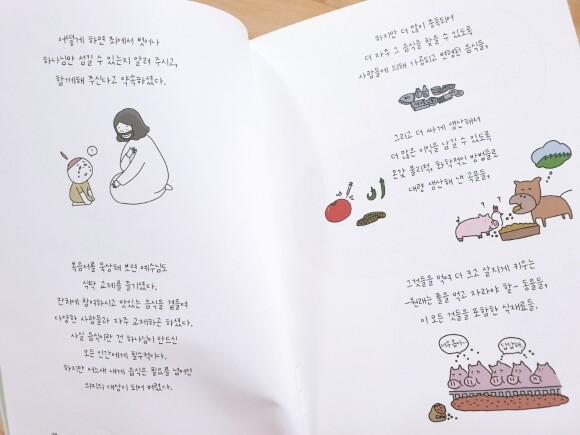 어떻게 하면 죄에서 벗어나
하나님만 섬길 수 있는지 알려 주시고,
함께해 주신다고 약속하셨다.
?
복음서를 묵상해 보면 예수님도
식탁 교제를 즐기셨다.
잔치에 참여하시고 맛있는 음식을 곁들여
다양한 사람들과 자주 교제하곤 하셨다.
사실 음식이란 건 하나님이 만드신
모든 인간에게 필수적이다.
하지만 어느새 내게 음식은 필요를 넘어선
위지의 대상이 되어 버렸다.
하지만 더 많이 중독되어
더 자주 그 음식을 찾을 수 있도록
사람들에 의해 가공되고 변형된 음식들,
그리고 더 싸게 생산해서
더 많은 이익을 남길 수 있도록
온갖 물리적, 화학적인 방법들로
대량 생산해 낸 곡물들,
? ?
그것들을 먹여 더 크고 살지게 키우는
-원래는 풀을 먹고 자라야 할- 동물들,
이 모든 것들을 포함한 식재료들.
답답해..